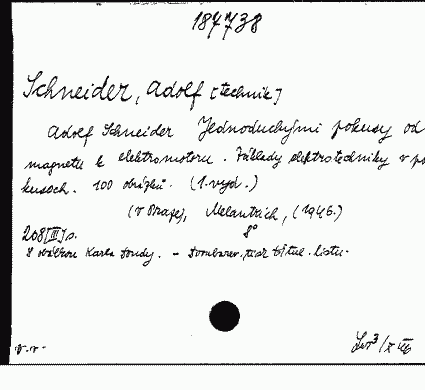 187738
Schneider, Adolf [technik]
Adolf Schneider Jednoduchými pokusy od
magnetu k elektromotoru. Základy elektrotechniky v po
kusech. 100 obrázků. (1. vyd.)
(V Praze), Melantrich, (1946.)
208 [III] s. 8°
S obálkou Karla . - titul. listu.
v.v.